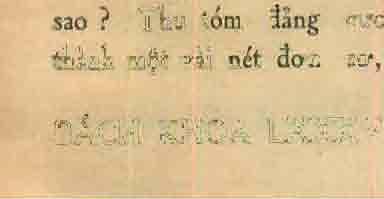 sao ? Thu tóm đảng
thành một vài nét đơn sơ,
BÁCH KHOA